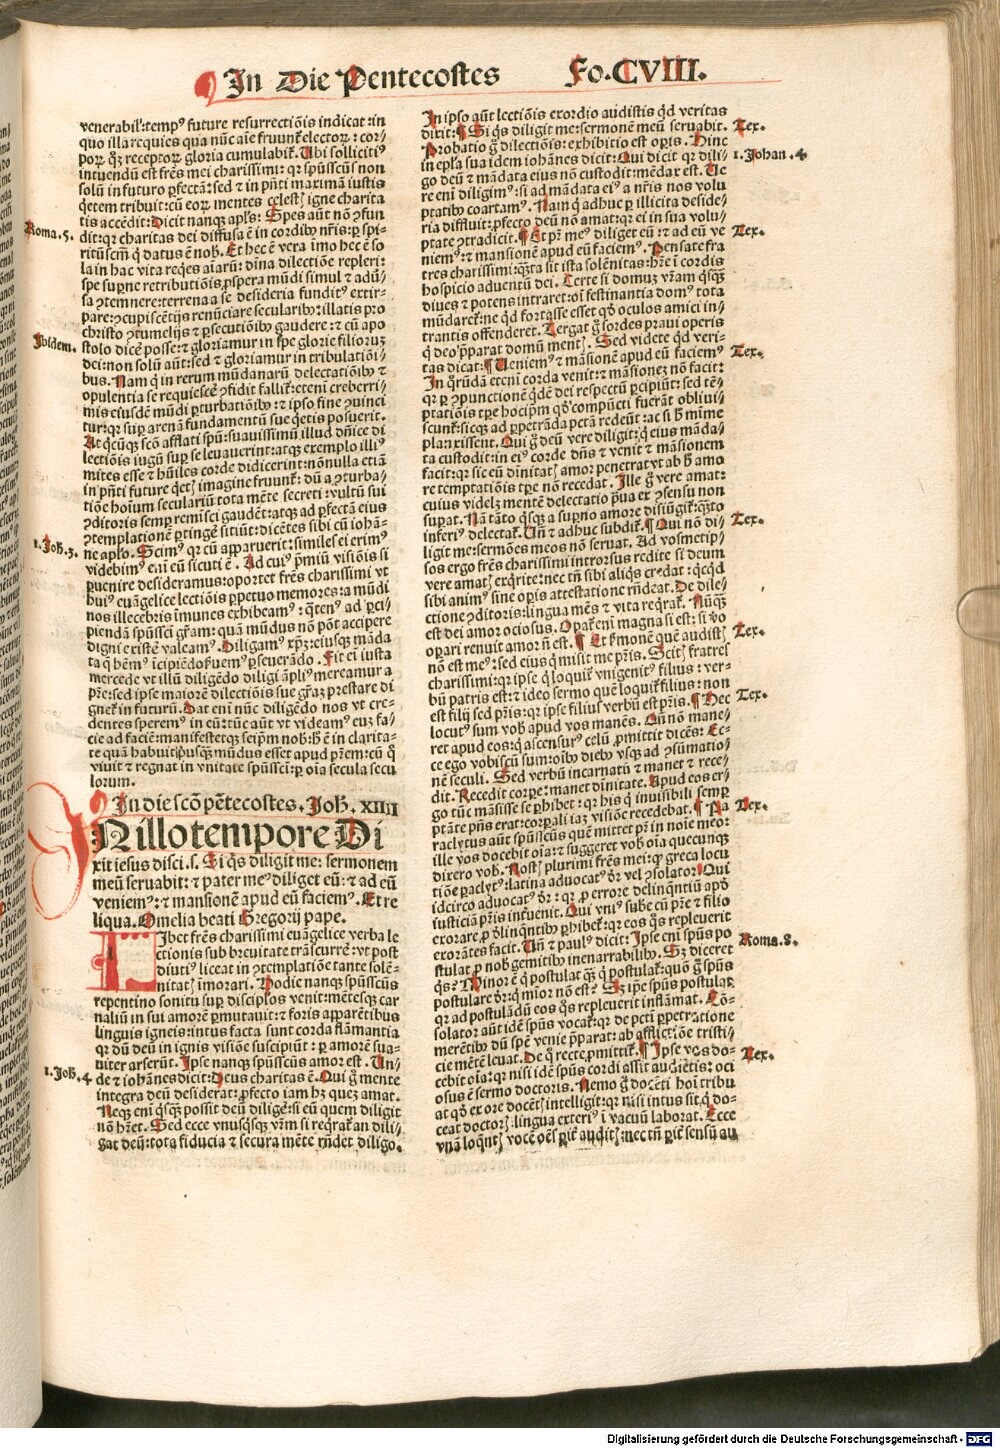 In Die Pentecostes Fo.CVIII.
venerabil':temp⁹ future resurrectiōis indicat:in
quo illa requies qua nūc aīe fruunt electorꝝ: cor/
porꝝ qꝫ receptorꝝ gloria cumulabit̄. Ubi sollicit⁹
intuendū est frēs mei charissimi: qr spūssctūs non
solū in futuro ꝑfectā: sed ⁊ in pn̄ti maximā iustis
q̄etem tribuit: cū eorꝝ mentes celesti igne charita
tis accēdit: Dicit nanqꝫ apls: Spes aūt nō ꝯfun
dit: qr charitas dei diffusa ē in cordibꝰ nr̄is: ꝑ spi/
Roma. 5.
ritūscm̄ q̄ datus ē nob. Et hec ē vera īmo hec ē so
la in hac vita reqes aīarū: dīna dilectiōe repleri:
spe suꝑne retributiōis ꝓspera mūdi simul ⁊ adū/
sa ꝯtemnere: terrena a se desideria fundit⁹ extir/
pare: ꝯcupiscētijs renūciare secularibꝰ: illatis pro
christo ꝯtumelijs ⁊ ꝑsecutiōibꝰ gaudere: ⁊ cū apo
Ibidem.
stolo dicē posse: ⁊ gloriamur in spe glorie filioruꝫ
dei: non solū aūt: sed ⁊ gloriamur in tribulatiōi/
bus. Nam q̄ in rerum mūdanarū delectatiōibꝰ ⁊
opulentia se requiescē ꝯfidit fallit̄: etenī creberri/
mis eiusdē mūdi ꝑturbatiōibꝰ: ⁊ ipso fine ꝯuinci
tur: qr suꝑ arenā fundamentū sue q̄etis posuerit.
At q̄cūqꝫ scō afflati spū: suauissimū illud dn̄ice di
lectiōis iugū suꝑ se leuauerint: atqꝫ exemplo illi⁹
mites esse ⁊ hūiles corde didicerint: nōnulla etiā
in pn̄ti future q̄et imagine fruunt̄: dū a ꝯturba/
tiōe hoīum seculariū tota mēte secreti: vultū sui
ꝯditoris semꝑ remisci gaudēt: atqꝫ ad ꝑfectā eius
ꝯtemplationē ꝑtingē sitiūt: dicētes sibi cū iohā=
1. Joh. 3.
ne aplo. Scim⁹ qr cū apparuerit: similes ei erim⁹
videbim⁹ enī eū sicuti ē. Ad cui⁹ p̄miū visiōis si
ꝑuenire desideramus: oportet frēs charissimi vt
hui⁹ euāgelice lectiōis ꝑpetuo memores: a mūdi
nos illecebris īmunes exhibeam⁹: q̄ten⁹ ad ꝑci/
piendā spūssctī gr̄am: quā mūdus nō pōt accipere
digni existē valeam⁹. Diligam⁹ xp̄m: eiusqꝫ māda
ta q̄ bēm⁹ īcipiēdo seruem⁹ ꝑseuerādo. Fit eī iusta
mercede vt illū diligēdo diligi āpli⁹ mereamur a
pr̄e: sed ipse maiorē dilectiōis sue gr̄aꝫ p̄estare di
gnet̄ in futurū. Dat enī nūc diligēdo nos vt cre=
dentes speremꝰ in eū: tūc aūt vt videamꝰ euꝫ fa/
cie ad faciē: manifestetqꝫ seipm̄ nob: h̄ ē in clarita=
te quā habuit priusqꝫ mūdus esset apud pr̄em: cū q̄
viuit ⁊ regnat in vnitate spūssctī: ꝑ oīa secula secu
lorum.
In die scō pētecostes. Joh. XIIII
IN illo tempore Di
xit iesus disci.s. Si q̄s diligit me: sermonem
meū seruabit: ⁊ pater me⁹ diliget eū: ⁊ ad eū
veniem⁹: ⁊ mansionē apud eū faciem⁹. Et re
liqua. Omelia beati Gregorij pape.
LIbet frēs charissimi euāgelice verba le
ctionis sub breuitate trāscurrē: vt post
diuti⁹ liceat in ꝯtemplatiōe tante solē=
nitat īmorari. Hodie nanqꝫ spūssctūs
repentino sonitu suꝑ disciplos venit: mētesqꝫ car
naliū in sui amorē ꝑmutauit: ⁊ foris apparētibus
linguis igneis: intus facta sunt corda flāmantia
qr dū deū in ignis visiōe susciputi: ꝑ amorē sua=
uiter arserūt. Ipse nanqꝫ spūssctūs amor est. Un/
1. Joh. 4.
de ⁊ iohānes dicit: Deus charitas ē. Qui g̊ mente
integra deū desiderat: ꝓfecto iam hꝫ queꝫ amat.
Neqꝫ enī q̄sqꝫ possit deū diligē: si eū quem diligit
nō hꝫet. Sed ecce vnusq̄sqꝫ vr̄m si reqrat̄ an dili/
gat deū: tota fiducia ⁊ secura mēte rn̄det diligo.
In ipso aūt lectiōis exordio audistis qd veritas
Tex.
dixit: Si q̄s diligit me: sermonē meū seruabit.
Probatio g̊ dilectiōis: exhibitio est oꝑis. Hinc
1. Johan. 4
in epla sua idem iohānes dicit: Qui dicit qr dili/
go deū ⁊ mādata eius nō custodit: mēdax est. Ue
re enī diligim⁹: si ad mādata ei⁹ a nr̄is nos volu
ptatibꝰ coartam⁹. Nam q̄ adhuc ꝑ illicita deside/
ria diffluit: ꝓfecto deū nō amat: qr ei in sua volu/
Tex.
ptate ꝯtradicit. Et pr̄ me⁹ diliget eū: ⁊ ad eū ve
niem⁹: ⁊ mansionē apud eū faciem⁹. Pensate fra
tres charissimi: q̄ta sit ista solēnitas: hr̄e ī cordis
hospicio aduentū dei. Certe si domuꝫ vr̄am q̄sqꝫ
diues ⁊ potens intraret: oī festinantia dom⁹ tota
mūdaret̄: ne qd fortasse esset qd oculos amici in/
trantis offenderet. Tergat g̊ sordes praui operis
q̄ deo p̄parat domū ment. Sed videte qd veri=
Tex.
tas dicat: Ueniem⁹ ⁊ mansionē apud eū faciem⁹
In q̄rūdā etenī corda venit: ⁊ mansioneꝫ nō facit:
qr ꝑ ꝯpunctionē q̄dē dei respectū ꝑcipiūt: sed tē=
ptatiōis tꝑe hocipm̄ qd ꝯpūcti fuerāt obliui/
scunt̄: sicqꝫ ad ꝑpetrāda pctā redeūt: ac si h̄ mīme
planxissent. Qui g̊ deū vere diligit: q̄ eius māda/
ta custodit: in ei⁹ corde dn̄s ⁊ venit ⁊ māsionem
facit: qr sic eū diuīitat amor penetrat vt ab h̄ amo
re temptatiōis tꝑe nō recedat. Ille g̊ vere amat:
cuius videlꝫ mentē delectatio p̄ua ex ꝯsensu non
suꝑat. Nā tāto q̄sqꝫ a suꝑno amore disiūgit̄: q̄to
inferi⁹ delectat̄. Un̄ ⁊ adhuc subdit̄. Qui nō di/
Tex.
ligit me: sermōes meos nō seruat. Ad vosmetip/
sos ergo frēs charissimi introrsus redite si deum
vere amat exq̄rite: nec tn̄ sibi aliq̄s credat: q̄cqd
sibi anim⁹ sine oꝑis attestatione rn̄deat. De dile/
ctione ꝯditoris: lingua mēs ⁊ vita reqrat̄. Nūq̄
est dei amor ociosus. Oꝑat̄ enī magna si est: si vo
oꝑari renuit amor nō est. Et sermonē quē audist
Tex.
nō est me⁹: sed eius q̄ misit me pr̄is. Scit fratres
charissimi: qr ipse q̄ loquit̄ vnigenit⁹ filius: ver=
bū patris est: ⁊ ideo sermo quē loquit̄ filius: non
est filij sed pr̄is: qr ipse filius verbū est pr̄is. Hec
Tex.
locut⁹ sum vob apud vos manēs. Qn̄ nō mane/
ret apud eos: q̄ ascensur⁹ celū ꝓmittit dicēs: Ec=
ce ego vobiscū sum: oībꝰ diebꝰ vsqꝫ ad ꝯsūmatio/
nē seculi. Sed verbū incarnatū ⁊ manet ⁊ rece/
dit. Recedit corꝑe: manet diuīitate. Apud eos er/
go tūc māsisse se ꝑhibet: qr his q̄ inuisibili semꝑ
ptāte pn̄s erat: corꝑali iaꝫ visiōe recedebat. Pa
Tex.
raclytus aūt spūssctūs quē mittet pr̄ in noīe meo:
ille vos docebit oīa: ⁊ suggeret vob oīa quecunqꝫ
dixero vob. Nost plurimi frēs mei: qr greca locu
tiōe paraclyt⁹: latina aduocat⁹ dr̄ vel ꝯsolator: Qui
idcirco aduocat⁹ dr̄: qr ꝓ errore delinqntiū apd
iusticiā pr̄is intuenit. Qui vni⁹ sube cū pr̄e ⁊ filio
exorare ꝓ dlinqntibꝰ ꝑhibet̄: qr eos q̄s repleuerit
exorātes facit. Un̄ ⁊ paul⁹ dicit: Ipse enī spūs po
Roma. 8.
stulat ꝓ nob gemitibꝰ inenarrabilibꝰ. Sꝫ diceret
q̄s? Minor ē q̄ postulat q̄ꝫ q̄ postulat̄: quō g̊ spūs
postulare dr̄: q̄ mīor nō est? Sꝫ ipse spūs postulat
qr ad postulādū eos q̄s repleuerit inflāmat. Cō=
solator aūt idē spūs vocat̄: qr de pcti ꝑpetratione
merētibꝰ dū spē venie p̄parat: ab afflictiōe tristi/
cie mētē leuat. De q̄ recte ꝓmittit̄. Ipse vos do=
Tex.
cebit oīa: qr nisi idē spūs cordi assit audiētis: oci
osus ē sermo doctoris. Nemo g̊ docēti hoī tribu
at qd ex ore docēt intelligit: qr nisi intus sit q̄ do=
ceat doctor lingua exteri⁹ ī vacuū laborat. Ecce
vnā loqnt vocē oēs pit̄ audit: nec tn̄ pit̄ sensū au
Digitalisierung gefördert durch die Deutsche Forschungsgemeinschaft - DFG